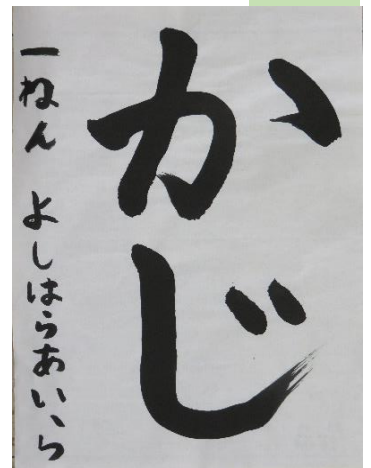 かじ
一ねん よしはらあいら